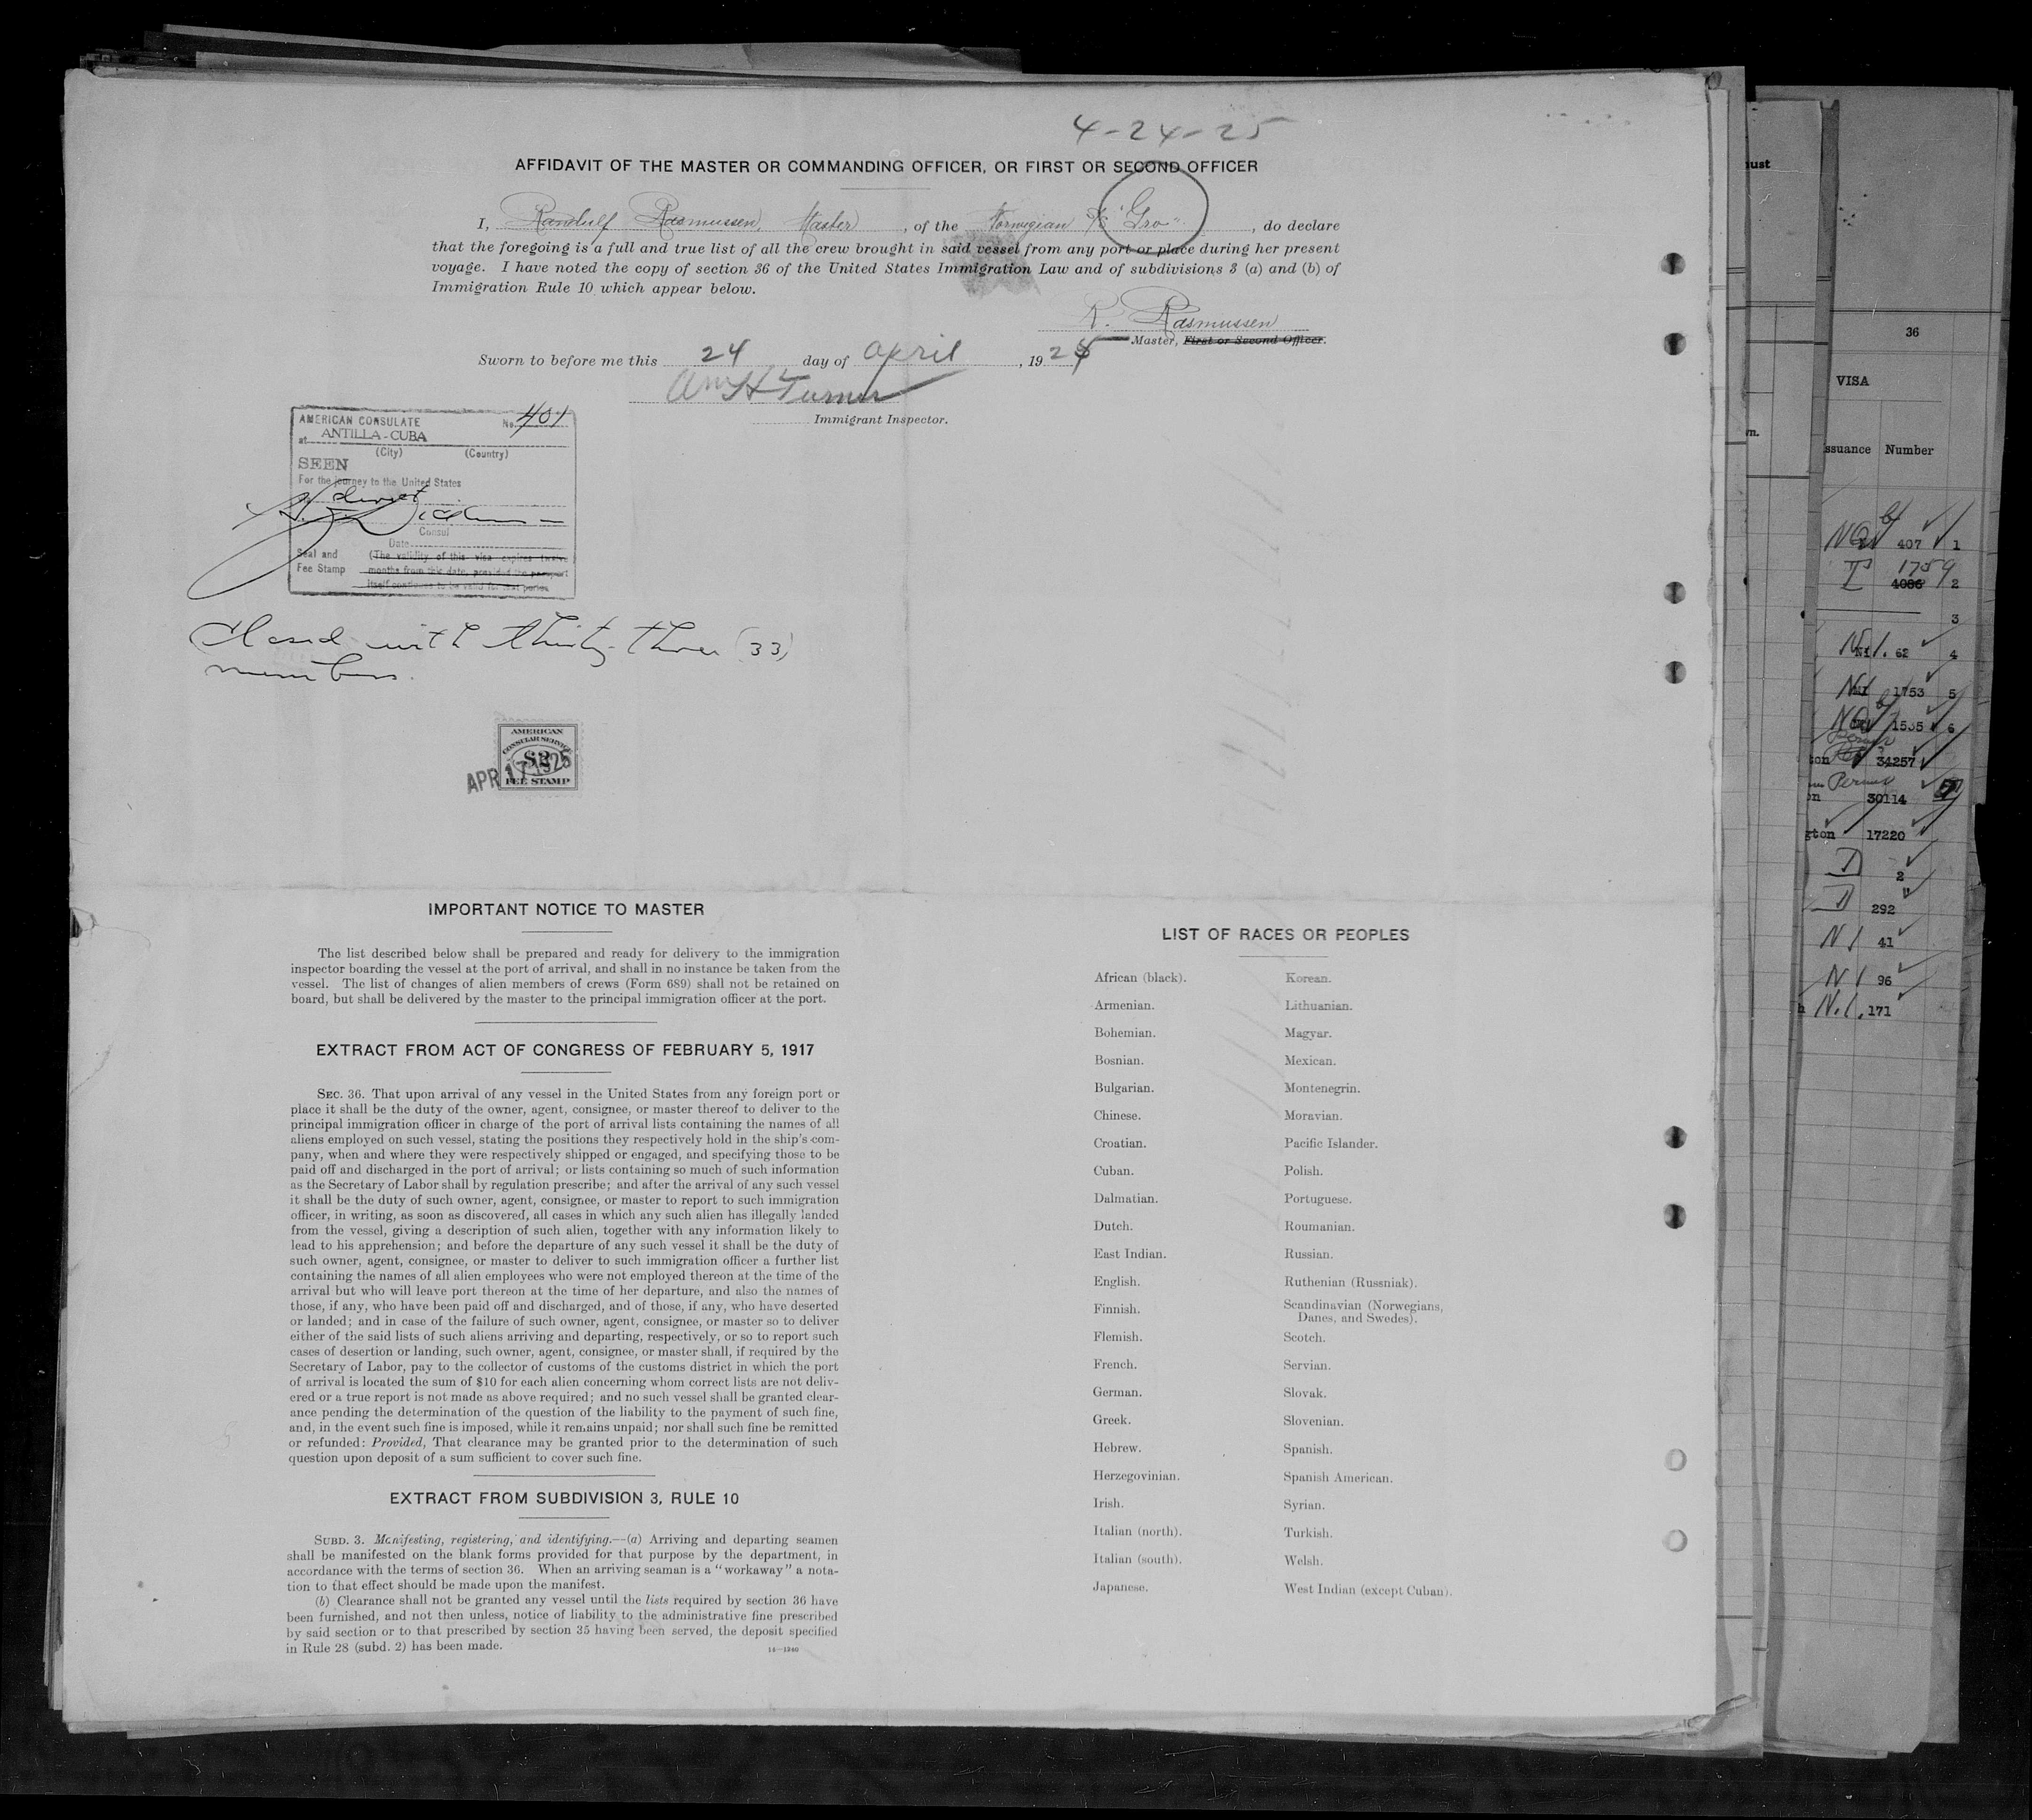 4-24-25
AFFIDAVIT OF THE MASTER OR COMMANDING OFFICER, OR FIRST OR SECOND OFFICER
I, Randulf Rasmussen, Master, of the Norwegian S/S "Gro", do declare
that the foregoing is a full and true list of all the crew brought in said vessel from any port or place during her present
voyage. I have noted the copy of section 36 of the United States Immigration Law and of subdivisions 3 (a) and (b) of
Immigration Rule 10 which appear below.
R. Rasmussen
Master, First or Second Officer.
Sworn to before me this 24 day of April, 1925
Wm H Turner
Immigrant Inspector.
AMERICAN CONSULATE No. 401
at ANTILLA-CUBA
(City) (Country)
SEEN
For the journey to the United States
direct
Consul
Date
Seal and (The validity of this visa expires twelve
Fee Stamp months from this date, provided the passport
itself continues to be valid for that period.
Closed with thirty-three (33)
members.
AMERICAN
CONSULAR SERVICE
$2
FEE STAMP
APR 17 1925
IMPORTANT NOTICE TO MASTER
The list described below shall be prepared and ready for delivery to the immigration
inspector boarding the vessel at the port of arrival, and shall in no instance be taken from the
vessel. The list of changes of alien members of crews (Form 689) shall not be retained on
board, but shall be delivered by the master to the principal immigration officer at the port.
EXTRACT FROM ACT OF CONGRESS OF FEBRUARY 5, 1917
SEC. 36. That upon arrival of any vessel in the United States from any foreign port or
place it shall be the duty of the owner, agent, consignee, or master thereof to deliver to the
principal immigration officer in charge of the port of arrival lists containing the names of all
aliens employed on such vessel, stating the positions they respectively hold in the ship's com-
pany, when and where they were respectively shipped or engaged, and specifying those to be
paid off and discharged in the port of arrival; or lists containing so much of such information
as the Secretary of Labor shall by regulation prescribe; and after the arrival of any such vessel
it shall be the duty of such owner, agent, consignee, or master to report to such immigration
officer, in writing, as soon as discovered, all cases in which any such alien has illegally landed
from the vessel, giving a description of such alien, together with any information likely to
lead to his apprehension; and before the departure of any such vessel it shall be the duty of
such owner, agent, consignee, or master to deliver to such immigration officer a further list
containing the names of all alien employees who were not employed thereon at the time of the
arrival but who will leave port thereon at the time of her departure, and also the names of
those, if any, who have been paid off and discharged, and of those, if any, who have deserted
or landed; and in case of the failure of such owner, agent, consignee, or master so to deliver
either of the said lists of such aliens arriving and departing, respectively, or so to report such
cases of desertion or landing, such owner, agent, consignee, or master shall, if required by the
Secretary of Labor, pay to the collector of customs of the customs district in which the port
of arrival is located the sum of $10 for each alien concerning whom correct lists are not deliv-
ered or a true report is not made as above required; and no such vessel shall be granted clear-
ance pending the determination of the question of the liability to the payment of such fine,
and, in the event such fine is imposed, while it remains unpaid; nor shall such fine be remitted
or refunded: Provided, That clearance may be granted prior to the determination of such
question upon deposit of a sum sufficient to cover such fine.
EXTRACT FROM SUBDIVISION 3, RULE 10
SUBD. 3. Manifesting, registering, and identifying.—(a) Arriving and departing seamen
shall be manifested on the blank forms provided for that purpose by the department, in
accordance with the terms of section 36. When an arriving seaman is a "workaway" a nota-
tion to that effect should be made upon the manifest.
(b) Clearance shall not be granted any vessel until the lists required by section 36 have
been furnished, and not then unless, notice of liability to the administrative fine prescribed
by said section or to that prescribed by section 35 having been served, the deposit specified
in Rule 28 (subd. 2) has been made.
14—1940
LIST OF RACES OR PEOPLES
African (black). Korean.
Armenian. Lithuanian.
Bohemian. Magyar.
Bosnian. Mexican.
Bulgarian. Montenegrin.
Chinese. Moravian.
Croatian. Pacific Islander.
Cuban. Polish.
Dalmatian. Portuguese.
Dutch. Roumanian.
East Indian. Russian.
English. Ruthenian (Russniak).
Finnish. Scandinavian (Norwegians,
Danes, and Swedes).
Flemish. Scotch.
French. Servian.
German. Slovak.
Greek. Slovenian.
Hebrew. Spanish.
Herzegovinian. Spanish American.
Irish. Syrian.
Italian (north). Turkish.
Italian (south). Welsh.
Japanese. West Indian (except Cuban).
ust
n.
36
VISA
ssuance Number
407 1
1759
4086 2
3
N1. 62 4
N1 1753 5
1535 6
ton 34257
on 30114
gton 17220
D 2
D 292
N1 41
N1 96
h N.1. 171